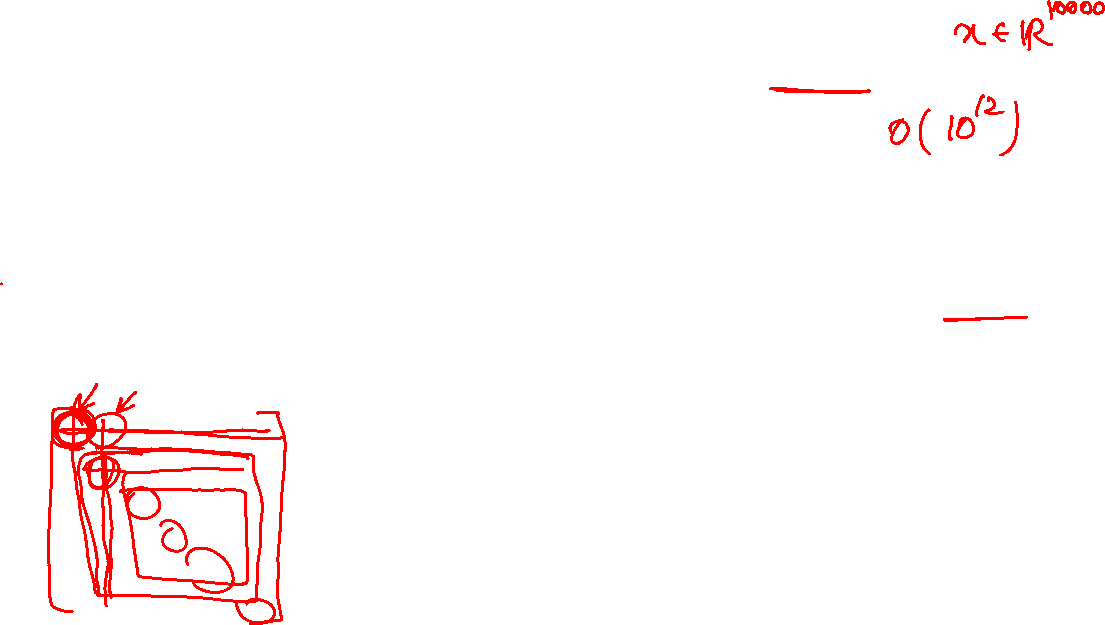 x ∈ ℝ^10000
O(10^12)